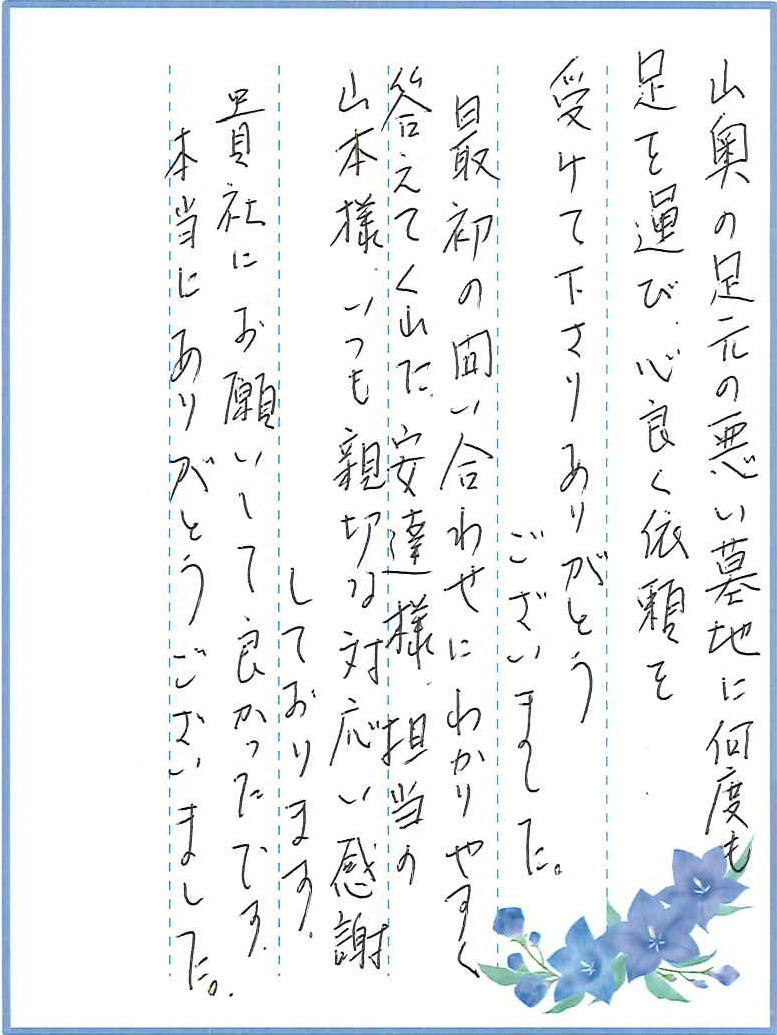 山奥の足元の悪い墓地に何度も
足を運び、心良く依頼を
受けて下さりありがとう
ございました。
最初の問い合わせにわかりやすく
答えてくれた安達様、担当の
山本様、いつも親切な対応い感謝
しております。
貴社にお願いして良かったです。
本当にありがとうございました。